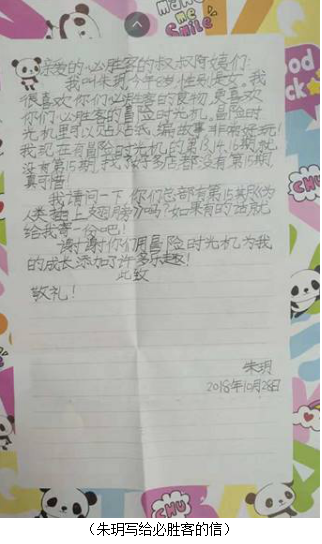 亲爱的必胜客的叔叔阿姨们:
我叫朱玥今年8岁,性别女。我
很喜欢你们必胜客的食物,更喜欢
你们必胜客的冒险时光机。冒险时
光机里可以贴贴纸、编故事非常好玩!
我现在有冒险时光机的第13,14,16期就
没有第15期,找了许多店都没有第15期
真可惜
我请问一下,你们总部有第15期《为
人类插上翅膀》吗?如果有的话就
给我寄一份吧!
谢谢你们用冒险时光机为我
的成长添加了许多乐趣!
此致
敬礼!
朱玥
2018年10月28日
MAKE
me
SMILE
Good
luck
CHU
CHU
(朱玥写给必胜客的信)